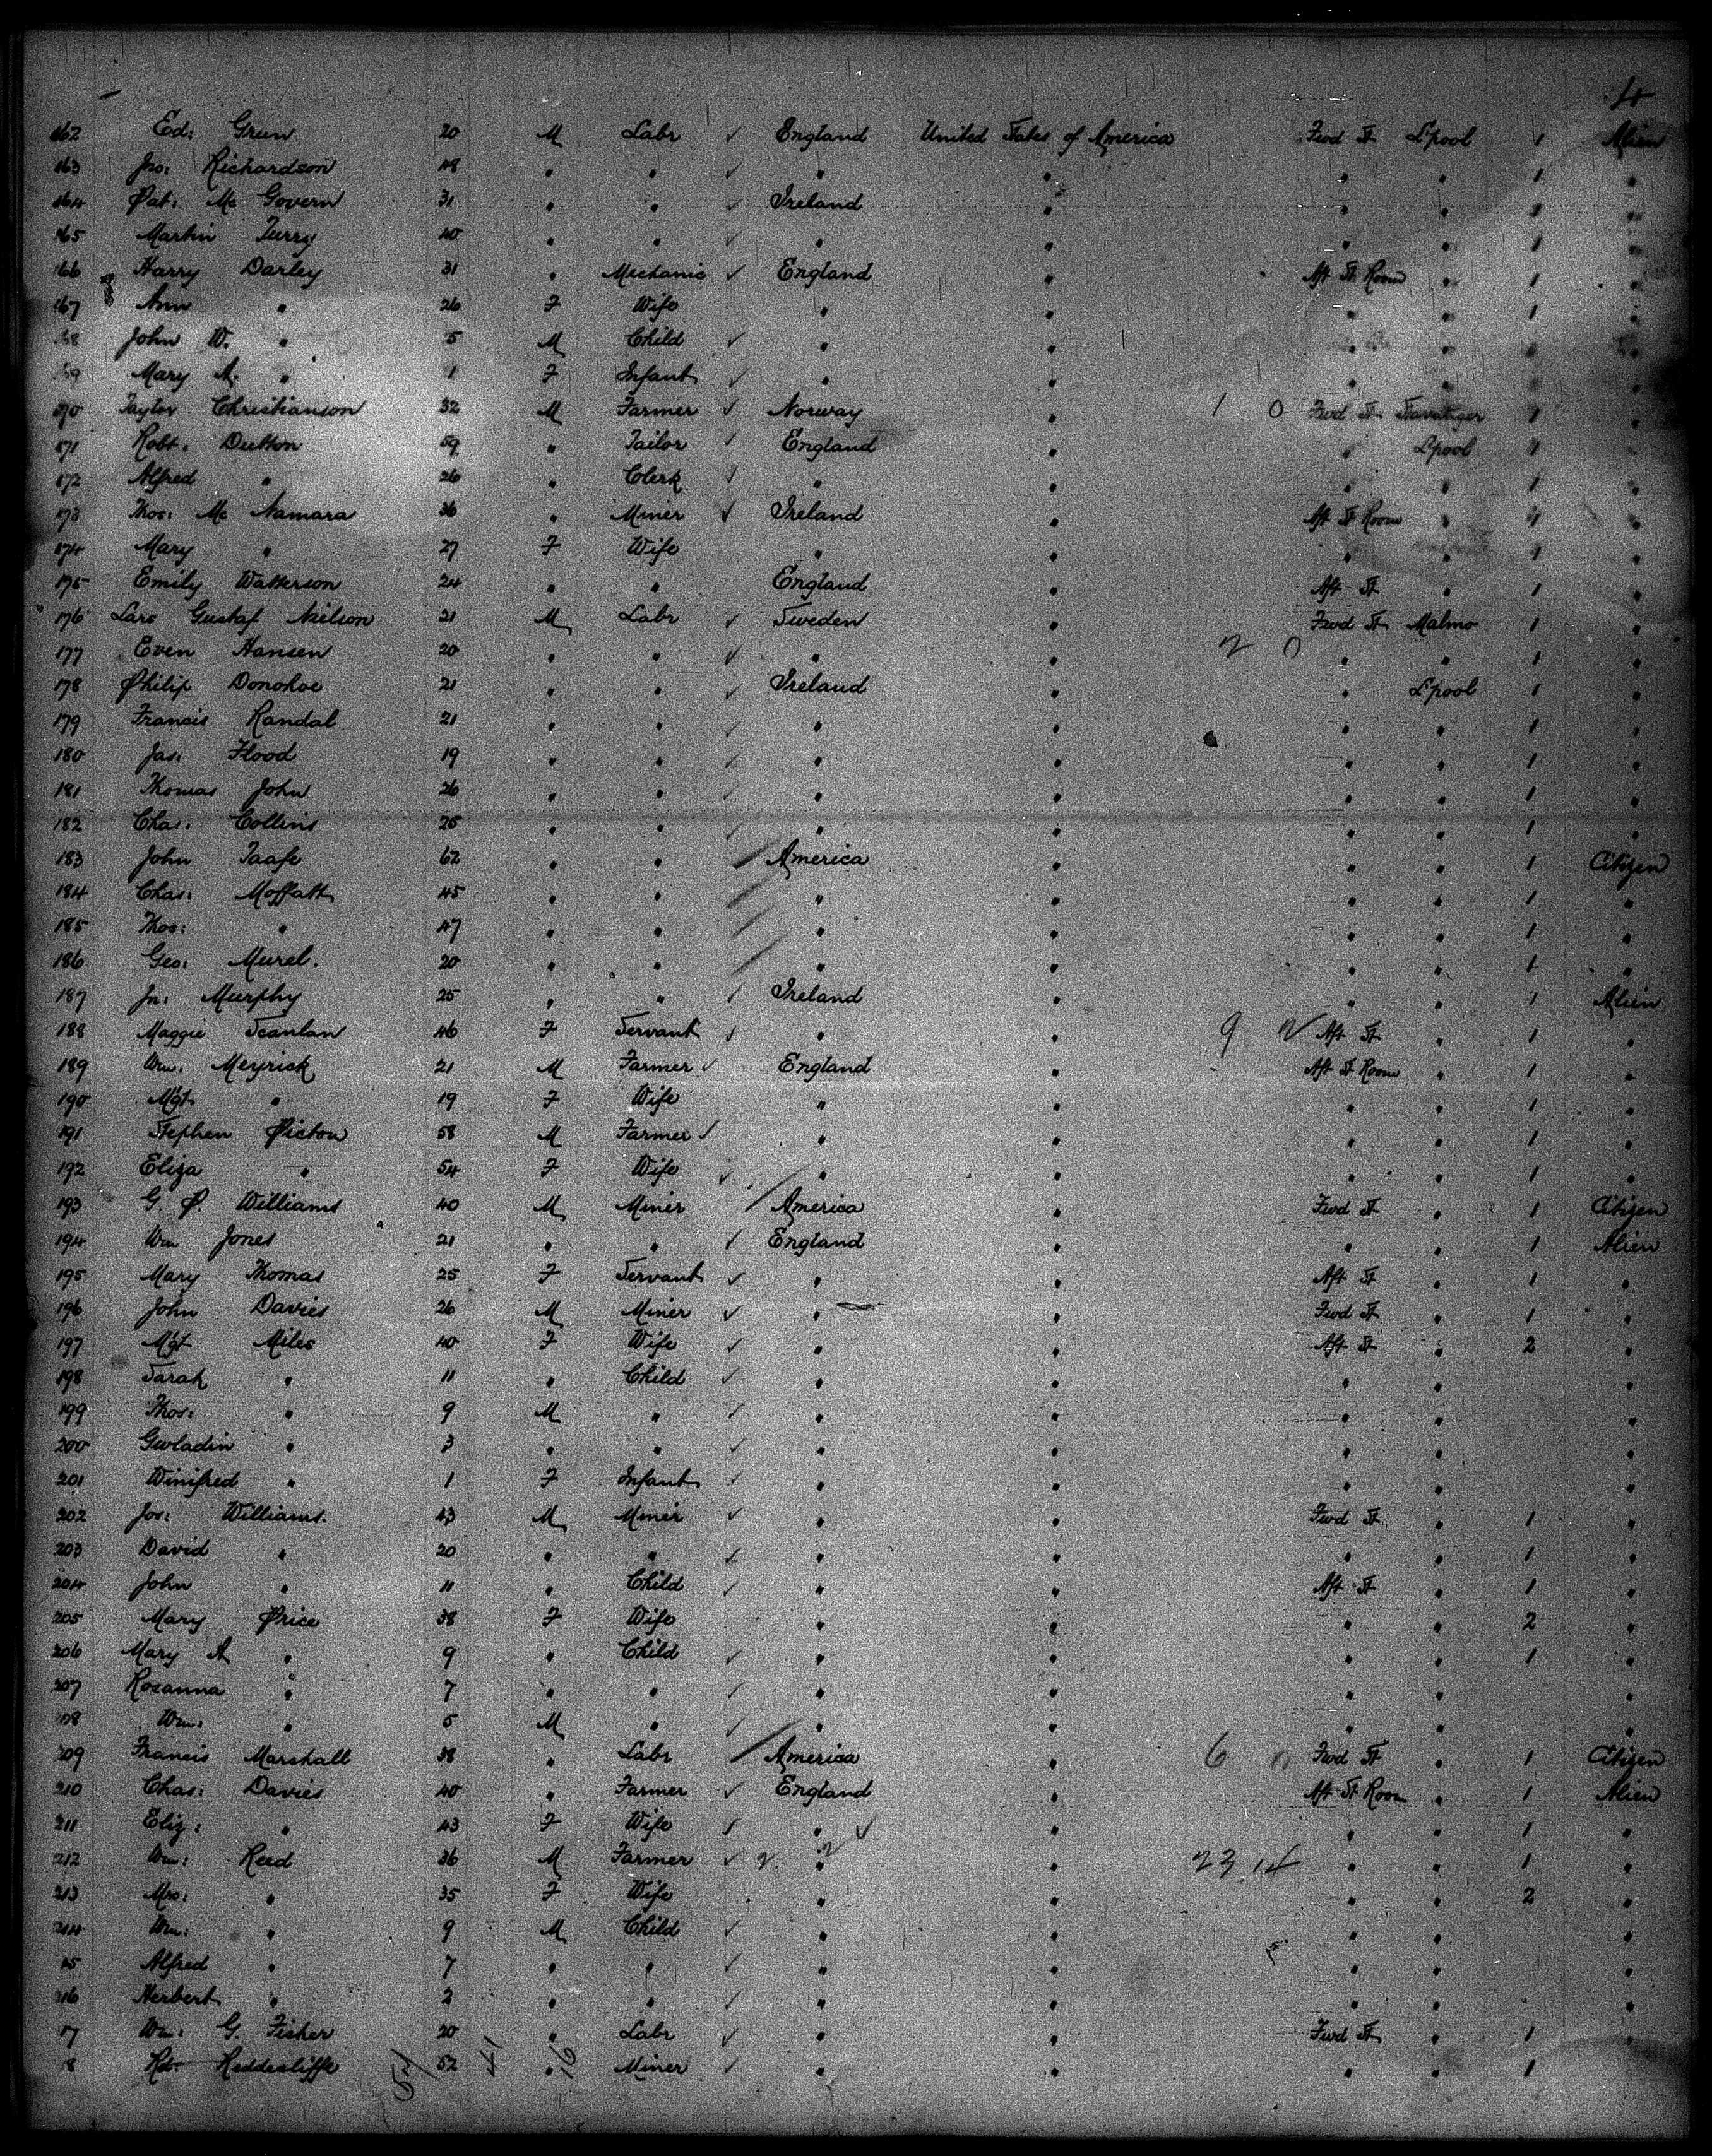 4
162 Ed: Grun 20 M Labr ✓ England United States of America Fwd St L'pool 1 Alien
163 Jno: Richardson 48 " " ✓ " " " " 1 "
164 Pat: Mc Govern 31 " " ✓ Ireland " " " 1 "
165 Martin 40 " " ✓ " " " " 1 "
166 Harry Darley 31 " Mechanic ✓ England " Aft St Room " 1 "
167 Ann " 26 F Wife " " " " 1 "
168 John W. " 5 M Child ✓ " " " " 1 "
169 Mary A. " 1 F Infant ✓ " " " " "
170 Taylor Christianson 32 M Farmer ✓ Norway " 1 0 Fwd St Stavanger 1 "
171 Robt: Dutton 59 " Tailor ✓ England " " L'pool 1 "
172 Alfred " 26 " Clerk ✓ " " " " 1 "
173 Thos: Mc Namara 36 " Miner ✓ Ireland " Aft St Room " 1 "
174 Mary " 27 F Wife " " " " 1 "
175 Emily Watterson 24 " " England " Aft St " 1 "
176 Lars Gustaf Neilson 21 M Labr ✓ Sweden " Fwd St Malmo 1 "
177 Even Hansen 20 " " ✓ " " 2 0 " " 1 "
178 Philip Donohoe 21 " " ✓ Ireland " " L'pool 1 "
179 Francis Randal 21 " " ✓ " " " " 1 "
180 Jas: Flood 19 " " ✓ " " " " 1 "
181 Thomas John 26 " " ✓ " " " " 1 "
182 Chas: Collins 25 " " ✓ " " " " 1 "
183 John Taafe 62 " " / America " " " 1 Citizen
184 Chas: Moffatt 45 " " / " " " " 1 "
185 Thos: " 47 " " / " " " " 1 "
186 Geo: Murel. 20 " " / " " " " 1 "
187 Jn: Murphy 25 " " ✓ Ireland " " " 1 Alien
188 Maggie Scanlan 46 F Servant ✓ " " 9 2 Aft St " 1 "
189 Wm: Meyrick 21 M Farmer ✓ England " Aft St Room " 1 "
190 Mgt " 19 F Wife " " " " 1 "
191 Stephen Picton 58 M Farmer ✓ " " " " 1 "
192 Eliza " 54 F Wife ✓ " " " " 1 "
193 G. P. Williams 40 M Miner / America " Fwd St " 1 Citizen
194 Wm Jones 21 " " ✓ England " " " 1 Alien
195 Mary Thomas 25 F Servant ✓ " " Aft St " 1 "
196 John Davies 26 M Miner ✓ " " Fwd St " 1 "
197 Mgt Miles 40 F Wife ✓ " " Aft St " 2 "
198 Sarah " 11 " Child ✓ " " " " "
199 Thos: " 9 M " ✓ " " " " "
200 Gwladin " 3 " " ✓ " " " " "
201 Winifred " 1 F Infant ✓ " " " " "
202 Jos: Williams. 43 M Miner ✓ " " Fwd St " 1 "
203 David " 20 " " ✓ " " " " 1 "
204 John " 11 " Child ✓ " " Aft St " 1 "
205 Mary Price 38 F Wife " " " " 2 "
206 Mary A " 9 " Child ✓ " " " " 1 "
207 Rosanna " 7 " " ✓ " " " " "
208 Wm: " 5 M " ✓ " " " " "
209 Francis Marshall 38 " Labr / America " 6 0 Fwd St " 1 Citizen
210 Chas: Davies 40 " Farmer ✓ England " Aft St Room " 1 Alien
211 Eliz: " 43 F Wife ✓ " ✓ " " " 1 "
212 Wm: Reed 36 M Farmer ✓ 2. 2 " " 23 14 " " 1 "
213 Mrs: " 35 F Wife " " " " 2 "
214 Wm: " 9 M Child ✓ " " " " "
15 Alfred " 7 " " ✓ " " " " "
216 Herbert " 2 " " ✓ " " " " "
17 Wm: G. Fisher 20 " Labr ✓ " " Fwd St " 1 "
8 Rd: Reddecliffe 52 " Miner ✓ " " " " 1 "
57 41 16